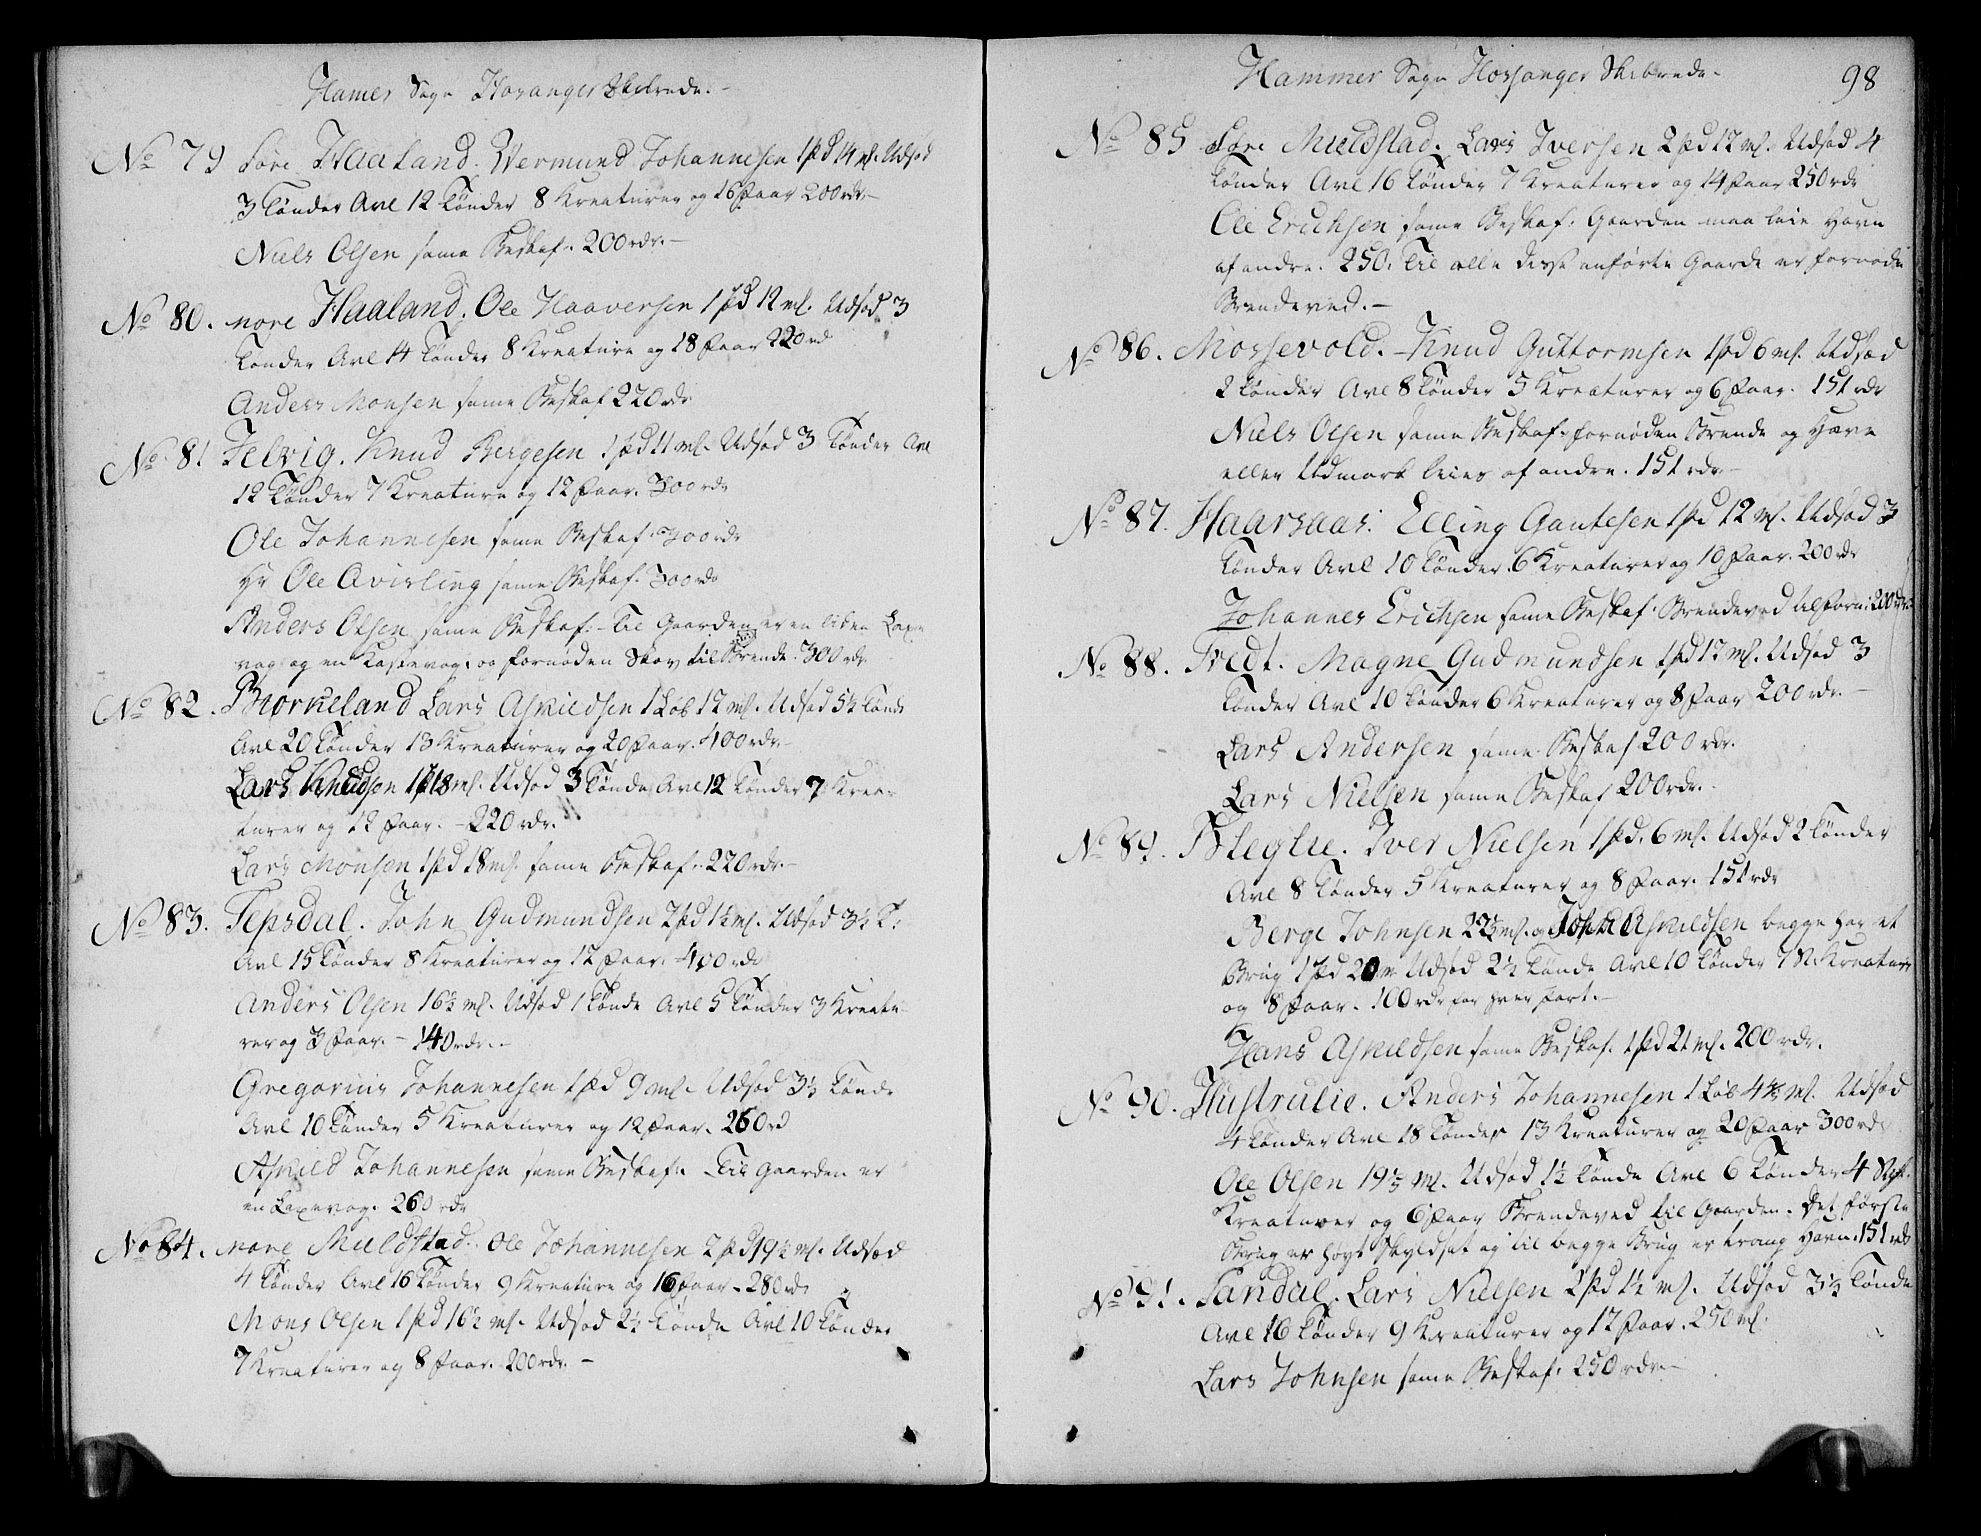 Hamer Sogn Hosanger Skibrede. -
No 79 Søre Haaland. Wermund Johannesen 1 pd 14 ml. Udsæd
3 Tønder Avl 12 Tønder 8 Kreaturer og 16 Faar 200 rdr. -
Niels Olsen same Beskaf. 200 rdr. -
No 80. nore Haaland. Ole Haaversen 1 pd 12 ml. Udsæd 3
Tønder Avl 14 Tønder 8 Kreature og 18 Faar 220 rd
Anders Monsen same Beskaf 220 rdr
No 81 Felvig. Knud Bergesen 1 pd 11 ml. Udsæd 3 Tønder Avl
12 Tønder 7 Kreature og 12 Faar. 300 rdr
Ole Johannesen same Beskaf. 300 rdr
Hr Ole Avirling same Beskaf. 300 rdr
Anders Olsen same Beskaf. - Til Gaarden er en liden Laxe
vog og en Kastevog. og fornøden Skov til Brende. 300 rdr
No 82. Biørkeland Lars Askildsen 1 Løb 12 ml. Udsæd 5½ Tønde
Avl 20 Tønder 13 Kreaturer og 20 Faar. 400 rdr. -
Lars Knudsen 1 p 18 ml. Udsæd 3 Tønde Avl 12 Tønder 7 Krea-
turer og 12 Faar. - 220 rdr.
Lars Monsen 1 pd 18 ml. same Beskaf. 220 rdr. -
No 83. Tepsdal. John Gudmundsen 2 pd 1½ ml. Udsæd 3½ T:
Avl 15 Tønder 8 Kreaturer og 12 Faar. 400 rdr
Anders Olsen 16½ ml. Udsæd 1 Tønde Avl 5 Tønder 3 Kreatu-
rer og 3 Faar. - 140 rdr. -
Gregorius Johannesen 1 pd 9 ml. Udsæd 3½ Tønde
Avl 10 Tønder 5 Kreaturer og 12 Faar. 260 rd
Askild Johannesen same Beskaf. Til Gaarden er
en Laxevog. 260 rdr
No 84. nore Muldstad. Ole Johannesen 2 pd 19½ ml. Udsæd
4 Tønder Avl 16 Tønder 9 Kreature og 16 Faar - 280 rdr
Mons Olsen 1 pd 16½ ml. Udsæd 2½ Tønde Avl 10 Tønder
7 Kreaturer og 8 Faar. 200 rdr. -
Hammer Sogn Hossanger Skibrede. 98
No 85 Søre Muldstad. Lars Iversen 2 pd 12 ml. Udsæd 4
Tønder Avl 16 Tønder 7 Kreaturer og 14 Faar 250 rdr
Ole Erichsen same Beskaf. Gaarden maa leie Havn
af andre. 250. Til alle disse anførte Gaarde er fornøden
Brendeved. -
No 86. Mossevold. Knud Guttormsen 1 pd 6 ml. Udsæd
2 Tønder Avl 8 Tønder 5 Kreaturer og 6 Faar. 151 rdr
Niels Olsen same Beskaf. fornøden Brende og Havn
eller Udmark leies af andre. 151 rdr
No 87. Haarsaas. Elling Gautesen 1 pd 12 ml. Udsæd 3
Tønder Avl 10 Tønder. 6 Kreaturer og 10 Faar. 200 rdr
Johannes Erichsen same Beskaf. Brendeved tilforn. 200 rdr
No 88. Tvedt. Magne Gudmundsen 1 pd 12 ml. Udsæd 3
Tønder Avl 10 Tønder 6 Kreaturer og 8 Faar 200 rdr. -
Lars Andersen same Beskaf 200 rdr.
Lars Nielsen same Beskaf 200 rdr.
No 89. Iver Nielsen 1 pd. 6 ml. Udsæd 2 Tønder
Avl 8 Tønder 5 Kreaturer og 8 Faar. 151 rdr
Berge Johnsen 22½ ml. og John Askildsen begge har et
Brug 1 pd 20 m Udsæd 2½ Tønde Avl 10 Tønder 7 St. Kreaturer
og 8 Faar. 100 rdr for hver Part. -
Hans Askildsen same Beskaf. 1 pd 21 ml. 200 rdr.
No 90. Hustrulie. Anders Johannesen 1 Løb 4⅘ ml. Udsæd
4 Tønder Avl 18 Tønder 13 Kreaturer og 20 Faar 300 rdr
Ole Olsen 19⅕ ml. Udsæd 1½ Tønde Avl 6 Tønder 4 Stk.
Kreaturer og 6 Faar Brendeved til Gaarden. Det første
Brug er høyt skyldsat og til begge Brug er trang Havn. 151 rdr
No 91. Sandal. Lars Nielsen 2 pd 1½ ml. Udsæd 3½ Tønde
Avl 16 Tønder 9 Kreaturer og 12 Faar. 250 ml.
Lars Johnsen same Beskaf. 250 rdr. -